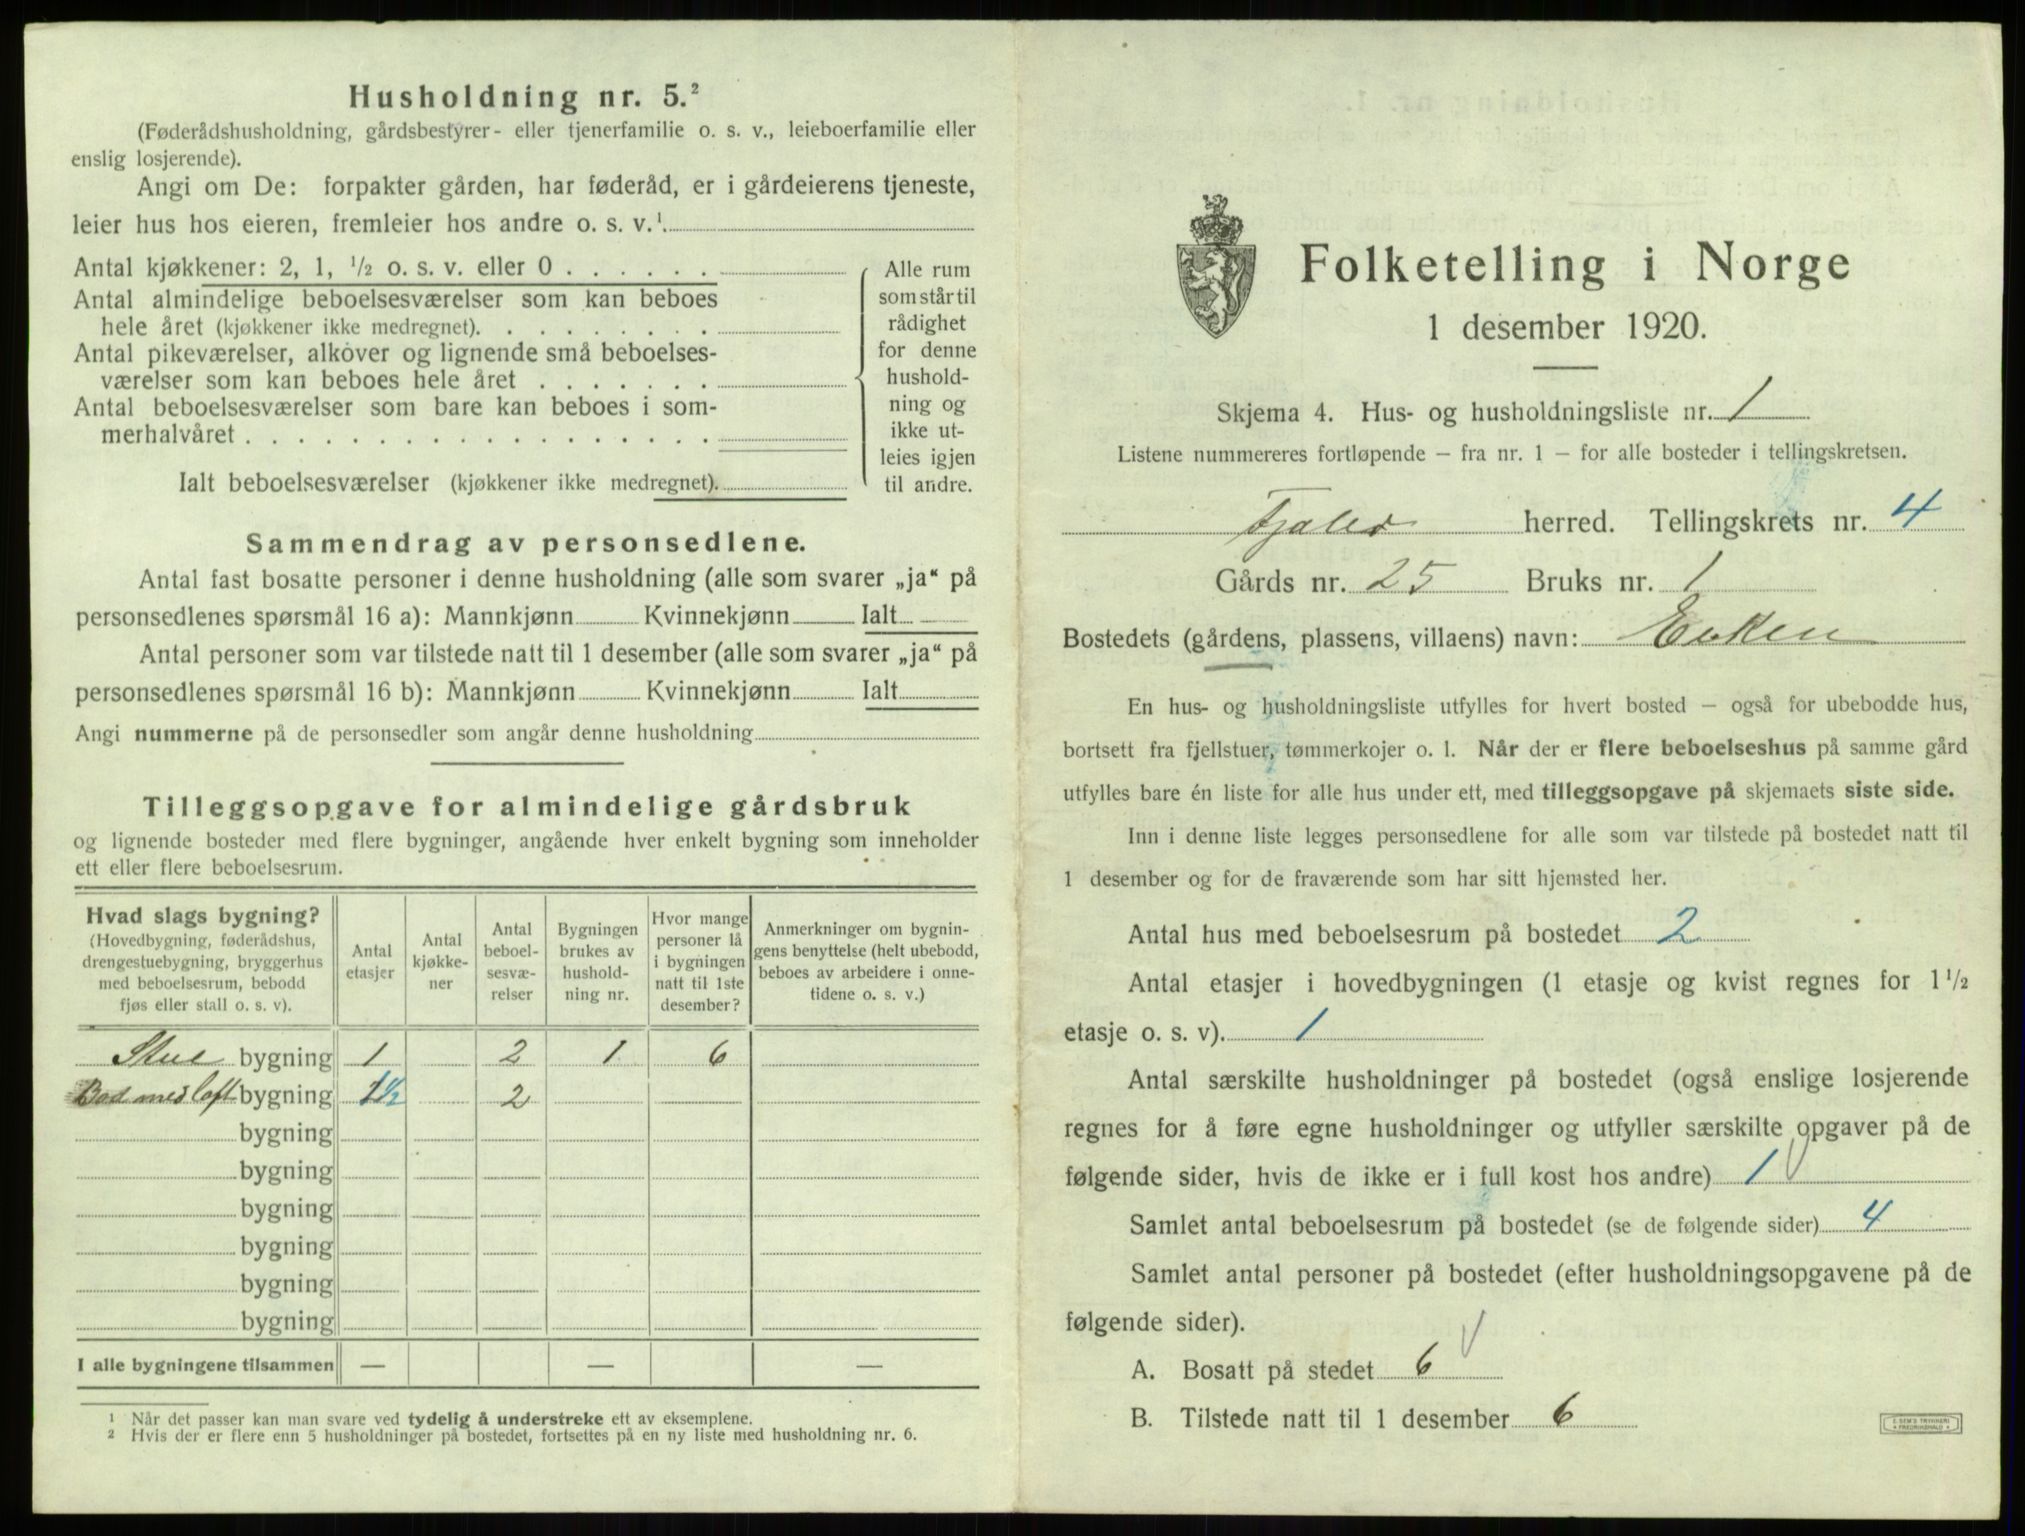 Husholdning nr. 5.²
(Føderådshusholdning, gårdsbestyrer- eller tjenerfamilie o. s. v., leieboerfamilie eller
enslig losjerende).
Angi om De: forpakter gården, har føderåd, er i gårdeierens tjeneste,
leier hus hos eieren, fremleier hos andre o. s. v.¹.
Antal kjøkkener: 2, 1, ½ o. s. v. eller 0 . . . . . .
Antal almindelige beboelsesværelser som kan beboes
hele året (kjøkkener ikke medregnet). . . . . . . . .
Antal pikeværelser, alkover og lignende små beboelses-
værelser som kan beboes hele året . . . . . . .
Antal beboelsesværelser som bare kan beboes i som-
merhalvåret . . . . . . . . . . . . . . . . . .
Ialt beboelsesværelser (kjøkkener ikke medregnet).
Alle rum
som står til
rådighet
for denne
hushold-
ning og
ikke ut-
leies igjen
til andre.
Sammendrag av personsedlene.
Antal fast bosatte personer i denne husholdning (alle som svarer „ja“ på
personsedlenes spørsmål 16 a): Mannkjønn Kvinnekjønn Ialt
Antal personer som var tilstede natt til 1 desember (alle som svarer „ja“ på
personsedlenes spørsmål 16 b): Mannkjønn Kvinnekjønn Ialt
Angi nummerne på de personsedler som angår denne husholdning
Tilleggsopgave for almindelige gårdsbruk
og lignende bosteder med flere bygninger, angående hver enkelt bygning som inneholder
ett eller flere beboelsesrum.
Hvad slags bygning?
(Hovedbygning, føderådshus,
drengestuebygning, bryggerhus
med beboelsesrum, bebodd
fjøs eller stall o. s. v).
Antal
etasjer
Antal
kjøkke-
ner
Antal
beboel-
sesvæ-
relser
Bygningen
brukes av
hushold-
ning nr.
Hvor mange
personer lå
i bygningen
natt til 1ste
desember?
Anmerkninger om bygnin-
gens benyttelse (helt ubebodd,
beboes av arbeidere i onne-
tidene o. s. v.)
Stue bygning 1 2 1 6
Bod med loft bygning 1½ 2
bygning
bygning
bygning
bygning
bygning
bygning
I alle bygningene tilsammen — — —
¹ Når det passer kan man svare ved tydelig å understreke ett av eksemplene.
² Hvis der er flere enn 5 husholdninger på bostedet, fortsettes på en ny liste med husholdning nr. 6.
Folketelling i Norge
1 desember 1920.
Skjema 4. Hus- og husholdningsliste nr. 1
Listene nummereres fortløpende – fra nr. 1 – for alle bosteder i tellingskretsen.
Fjaler herred. Tellingskrets nr. 4
Gårds nr. 25 Bruks nr. 1
Bostedets (gårdens, plassens, villaens) navn:
En hus- og husholdningsliste utfylles for hvert bosted – også for ubebodde hus,
bortsett fra fjellstuer, tømmerkojer o. l. Når der er flere beboelseshus på samme gård
utfylles bare én liste for alle hus under ett, med tilleggsopgave på skjemaets siste side.
Inn i denne liste legges personsedlene for alle som var tilstede på bostedet natt til
1 desember og for de fraværende som har sitt hjemsted her.
Antal hus med beboelsesrum på bostedet 2
Antal etasjer i hovedbygningen (1 etasje og kvist regnes for 1½
etasje o. s. v). 1
Antal særskilte husholdninger på bostedet (også enslige losjerende
regnes for å føre egne husholdninger og utfyller særskilte opgaver på de
følgende sider, hvis de ikke er i full kost hos andre) 1
Samlet antal beboelsesrum på bostedet (se de følgende sider) 4
Samlet antal personer på bostedet (efter husholdningsopgavene på de
følgende sider).
A. Bosatt på stedet 6
B. Tilstede natt til 1 desember 6
E. SEM'S TRYKKERI
FREDRIKSHALD